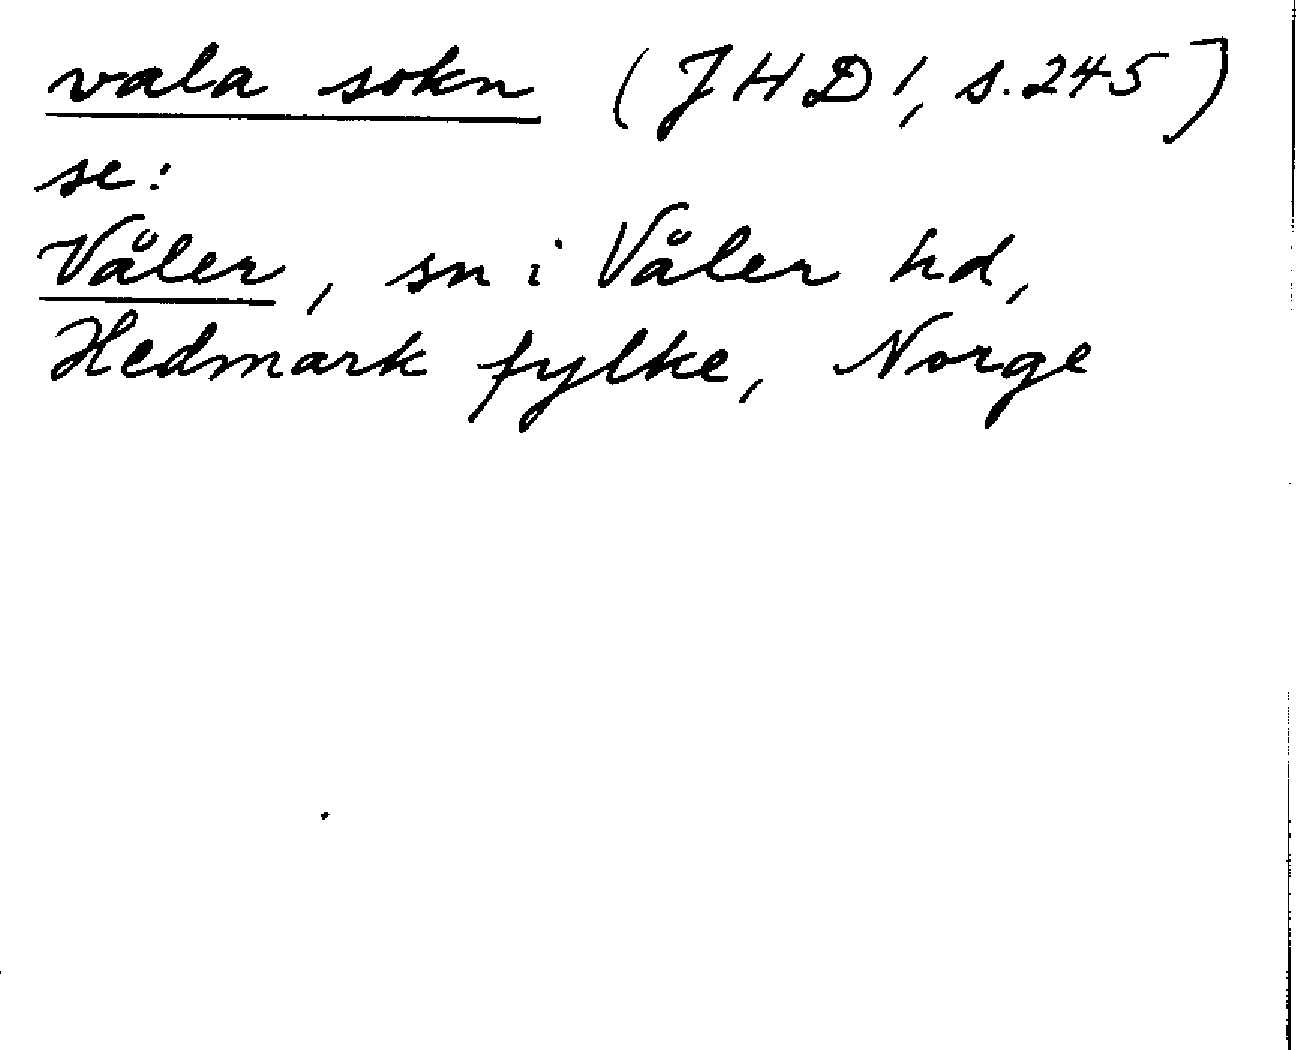 vala sokn (JHD 1, s. 245)
se:
Våler, sn i Våler hd,
Hedmark fylke, Norge